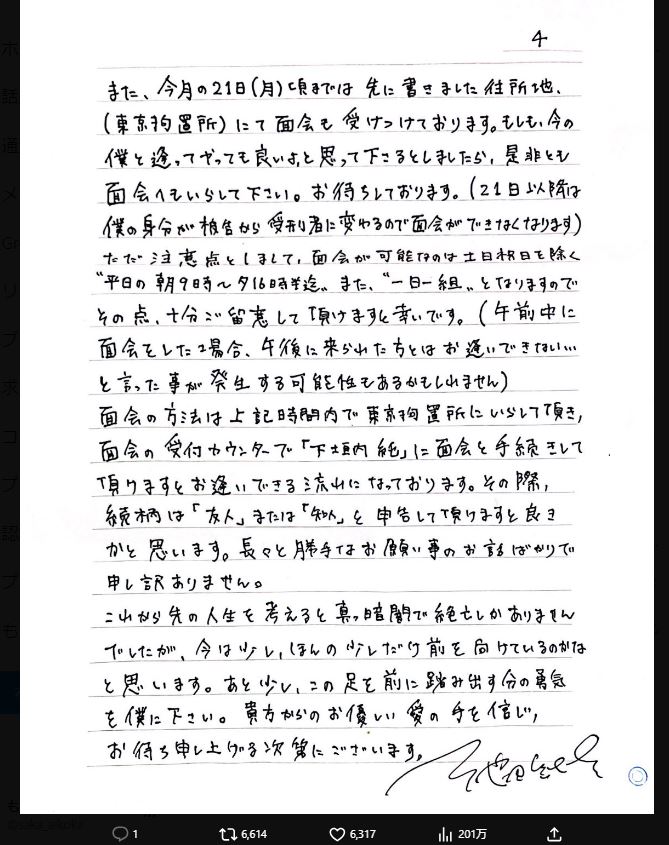 4
また、今月の21日(月)頃までは 先に書きました住所地、
(東京拘置所)にて面会も受けつけております。もしも、今の
僕と逢ってやっても良いよ、と思って下さるとしましたら、是非とも
面会へもいらして下さい。お待ちしております。(21日以降は
僕の身分が被告から受刑者に変わるので面会ができなくなります)
ただ注意点としまして、面会が可能なのは土日祝日を除く
“平日の朝9時〜夕16時半迄„ また、“一日一組„となりますので
その点、十分ご留意して頂けますと幸いです。(午前中に
面会をした場合、午後に来られた方とはお逢いできない…
と言った事が発生する可能性もあるかもしれません)
面会の方法は上記時間内で東京拘置所にいらして頂き、
面会の受付カウンターで「下垣内 純」に面会と手続きして
頂けますとお逢いできる流れになっております。その際、
続柄は「友人」または「知人」と申告して頂けますと良き
かと思います。長々と勝手なお願い事のお話ばかりで
申し訳ありません。
これから先の人生を考えると真っ暗闇で絶亡しかありません
でしたが、今は少し、ほんの少しだけ前を向けているのかな
と思います。あと少し、この足を前に踏み出す分の勇気
を僕に下さい。貴方からのお優しい愛の手を信じ、
お待ち申し上げる次第にございます。
1
6,614
6,317
201万